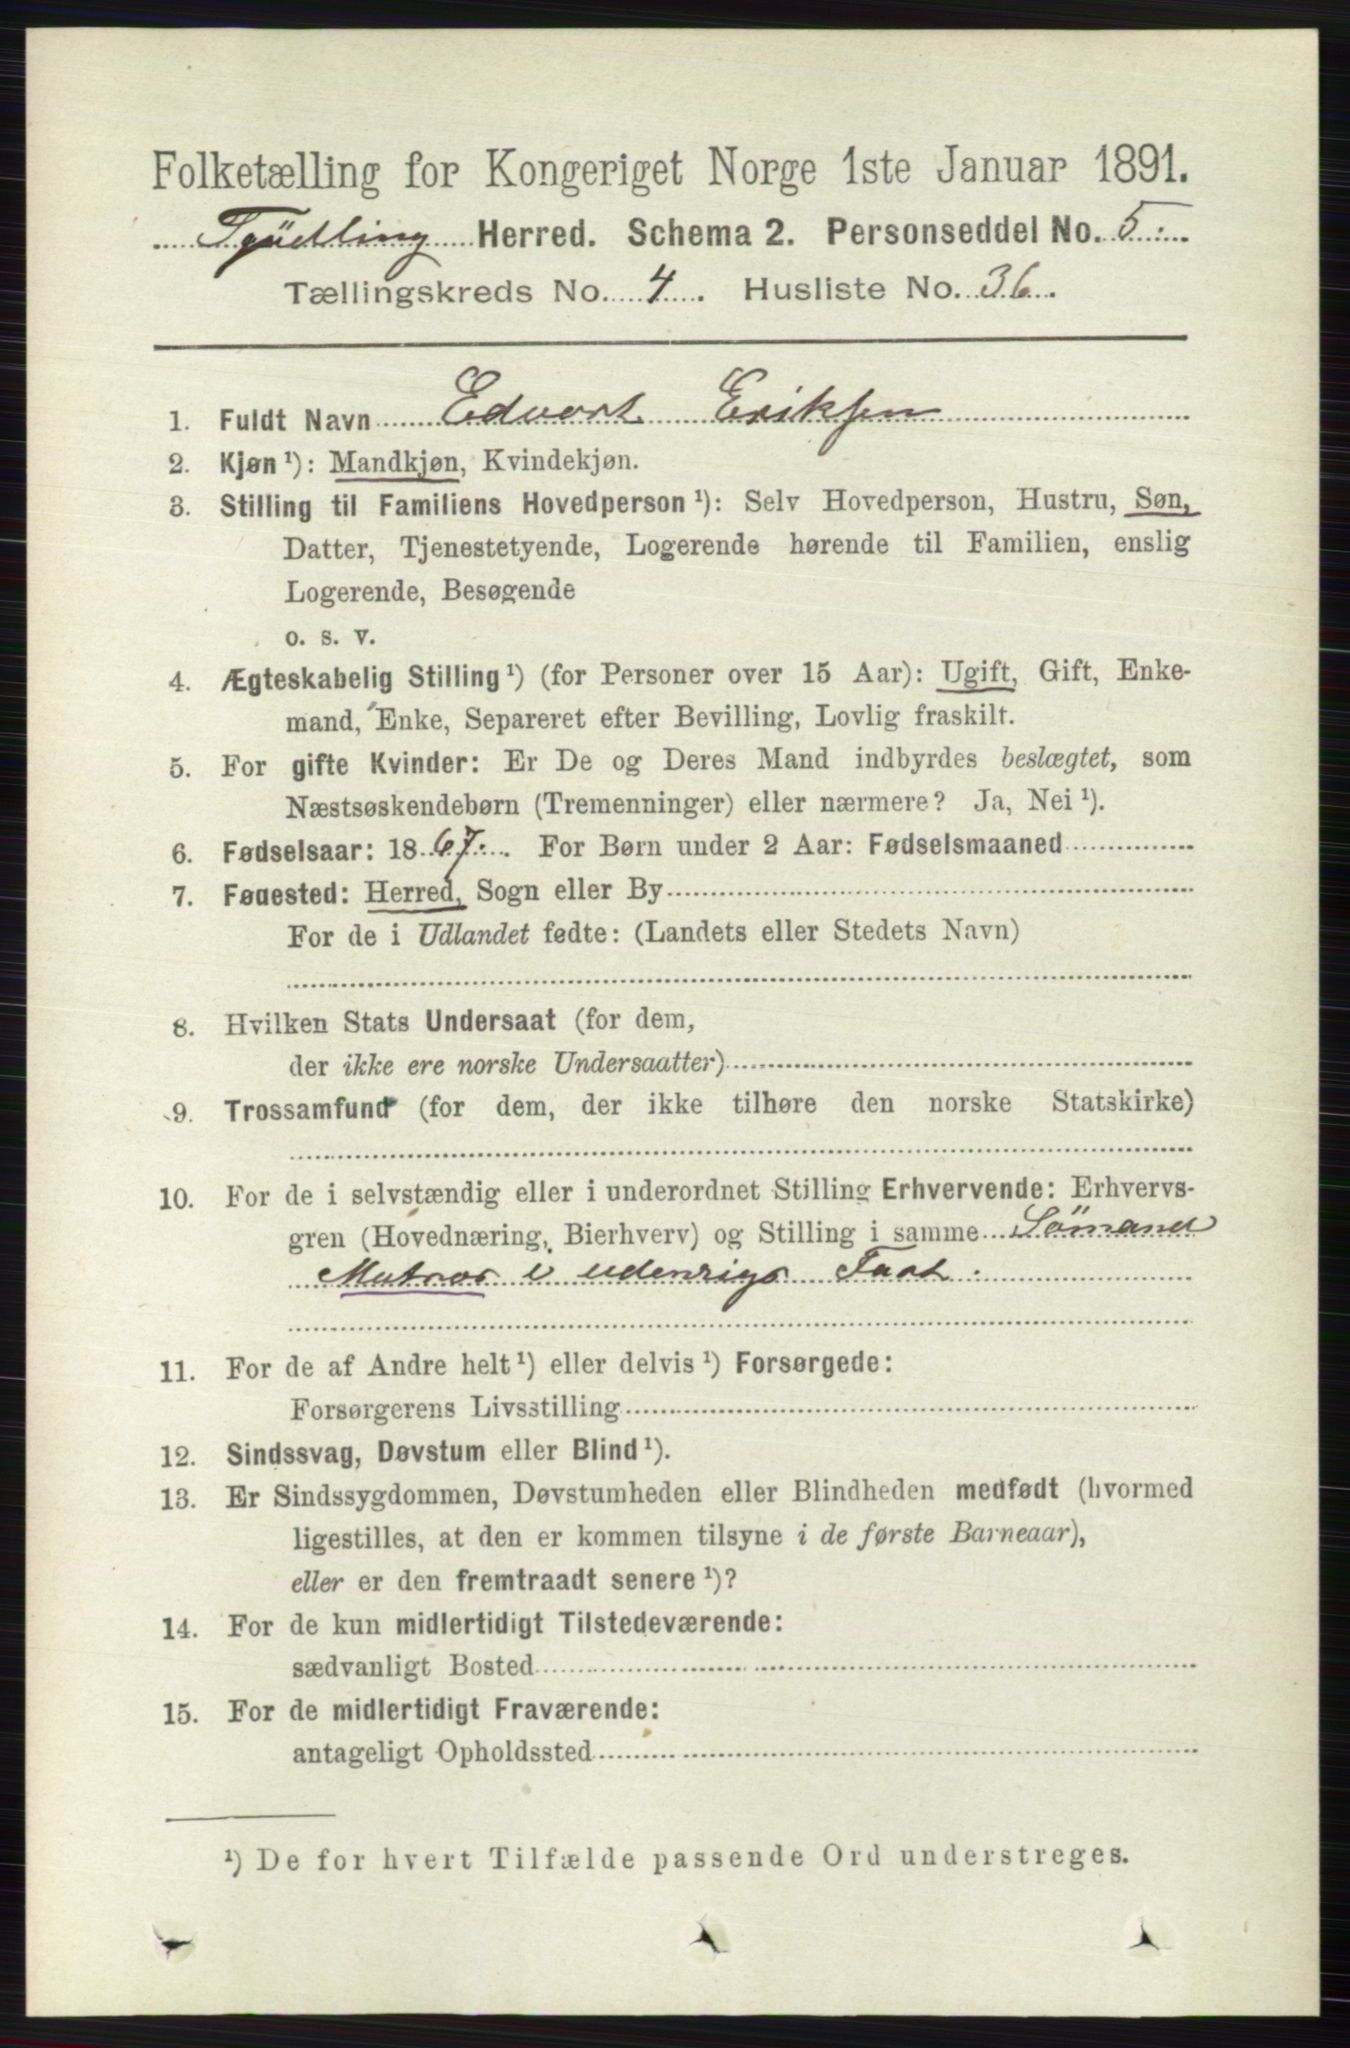 Folketælling for Kongeriget Norge 1ste Januar 1891.
Tjødling Herred. Schema 2. Personseddel No. 5.
Tællingskreds No. 4. Husliste No. 36.
1. Fuldt Navn Edvart Eriksen
2. Kjøn ¹): Mandkjøn, Kvindekjøn.
3. Stilling til Familiens Hovedperson ¹): Selv Hovedperson, Hustru, Søn,
Datter, Tjenestetyende, Logerende hørende til Familien, enslig
Logerende, Besøgende
o. s. v.
4. Ægteskabelig Stilling ¹) (for Personer over 15 Aar): Ugift, Gift, Enke-
mand, Enke, Separeret efter Bevilling, Lovlig fraskilt.
5. For gifte Kvinder: Er De og Deres Mand indbyrdes beslægtet, som
Næstsøskendebørn (Tremenninger) eller nærmere? Ja, Nei ¹).
6. Fødselsaar: 1867. For Børn under 2 Aar: Fødselsmaaned
7. Føuested: Herred, Sogn eller By
For de i Udlandet fødte: (Landets eller Stedets Navn)
8. Hvilken Stats Undersaat (for dem,
der ikke ere norske Undersaatter)
9. Trossamfund (for dem, der ikke tilhøre den norske Statskirke)
10. For de i selvstændig eller i underordnet Stilling Erhvervende: Erhvervs-
gren (Hovednæring, Bierhverv) og Stilling i samme Sömand
Matros i udenrigs Fart.
11. For de af Andre helt ¹) eller delvis ¹) Forsørgede:
Forsørgerens Livsstilling
12. Sindssvag, Døvstum eller Blind ¹).
13. Er Sindssygdommen, Døvstumheden eller Blindheden medfødt (hvormed
ligestilles, at den er kommen tilsyne i de første Barneaar),
eller er den fremtraadt senere ¹)?
14. For de kun midlertidigt Tilstedeværende:
sædvanligt Bosted
15. For de midlertidigt Fraværende:
antageligt Opholdssted
¹) De for hvert Tilfælde passende Ord understreges.